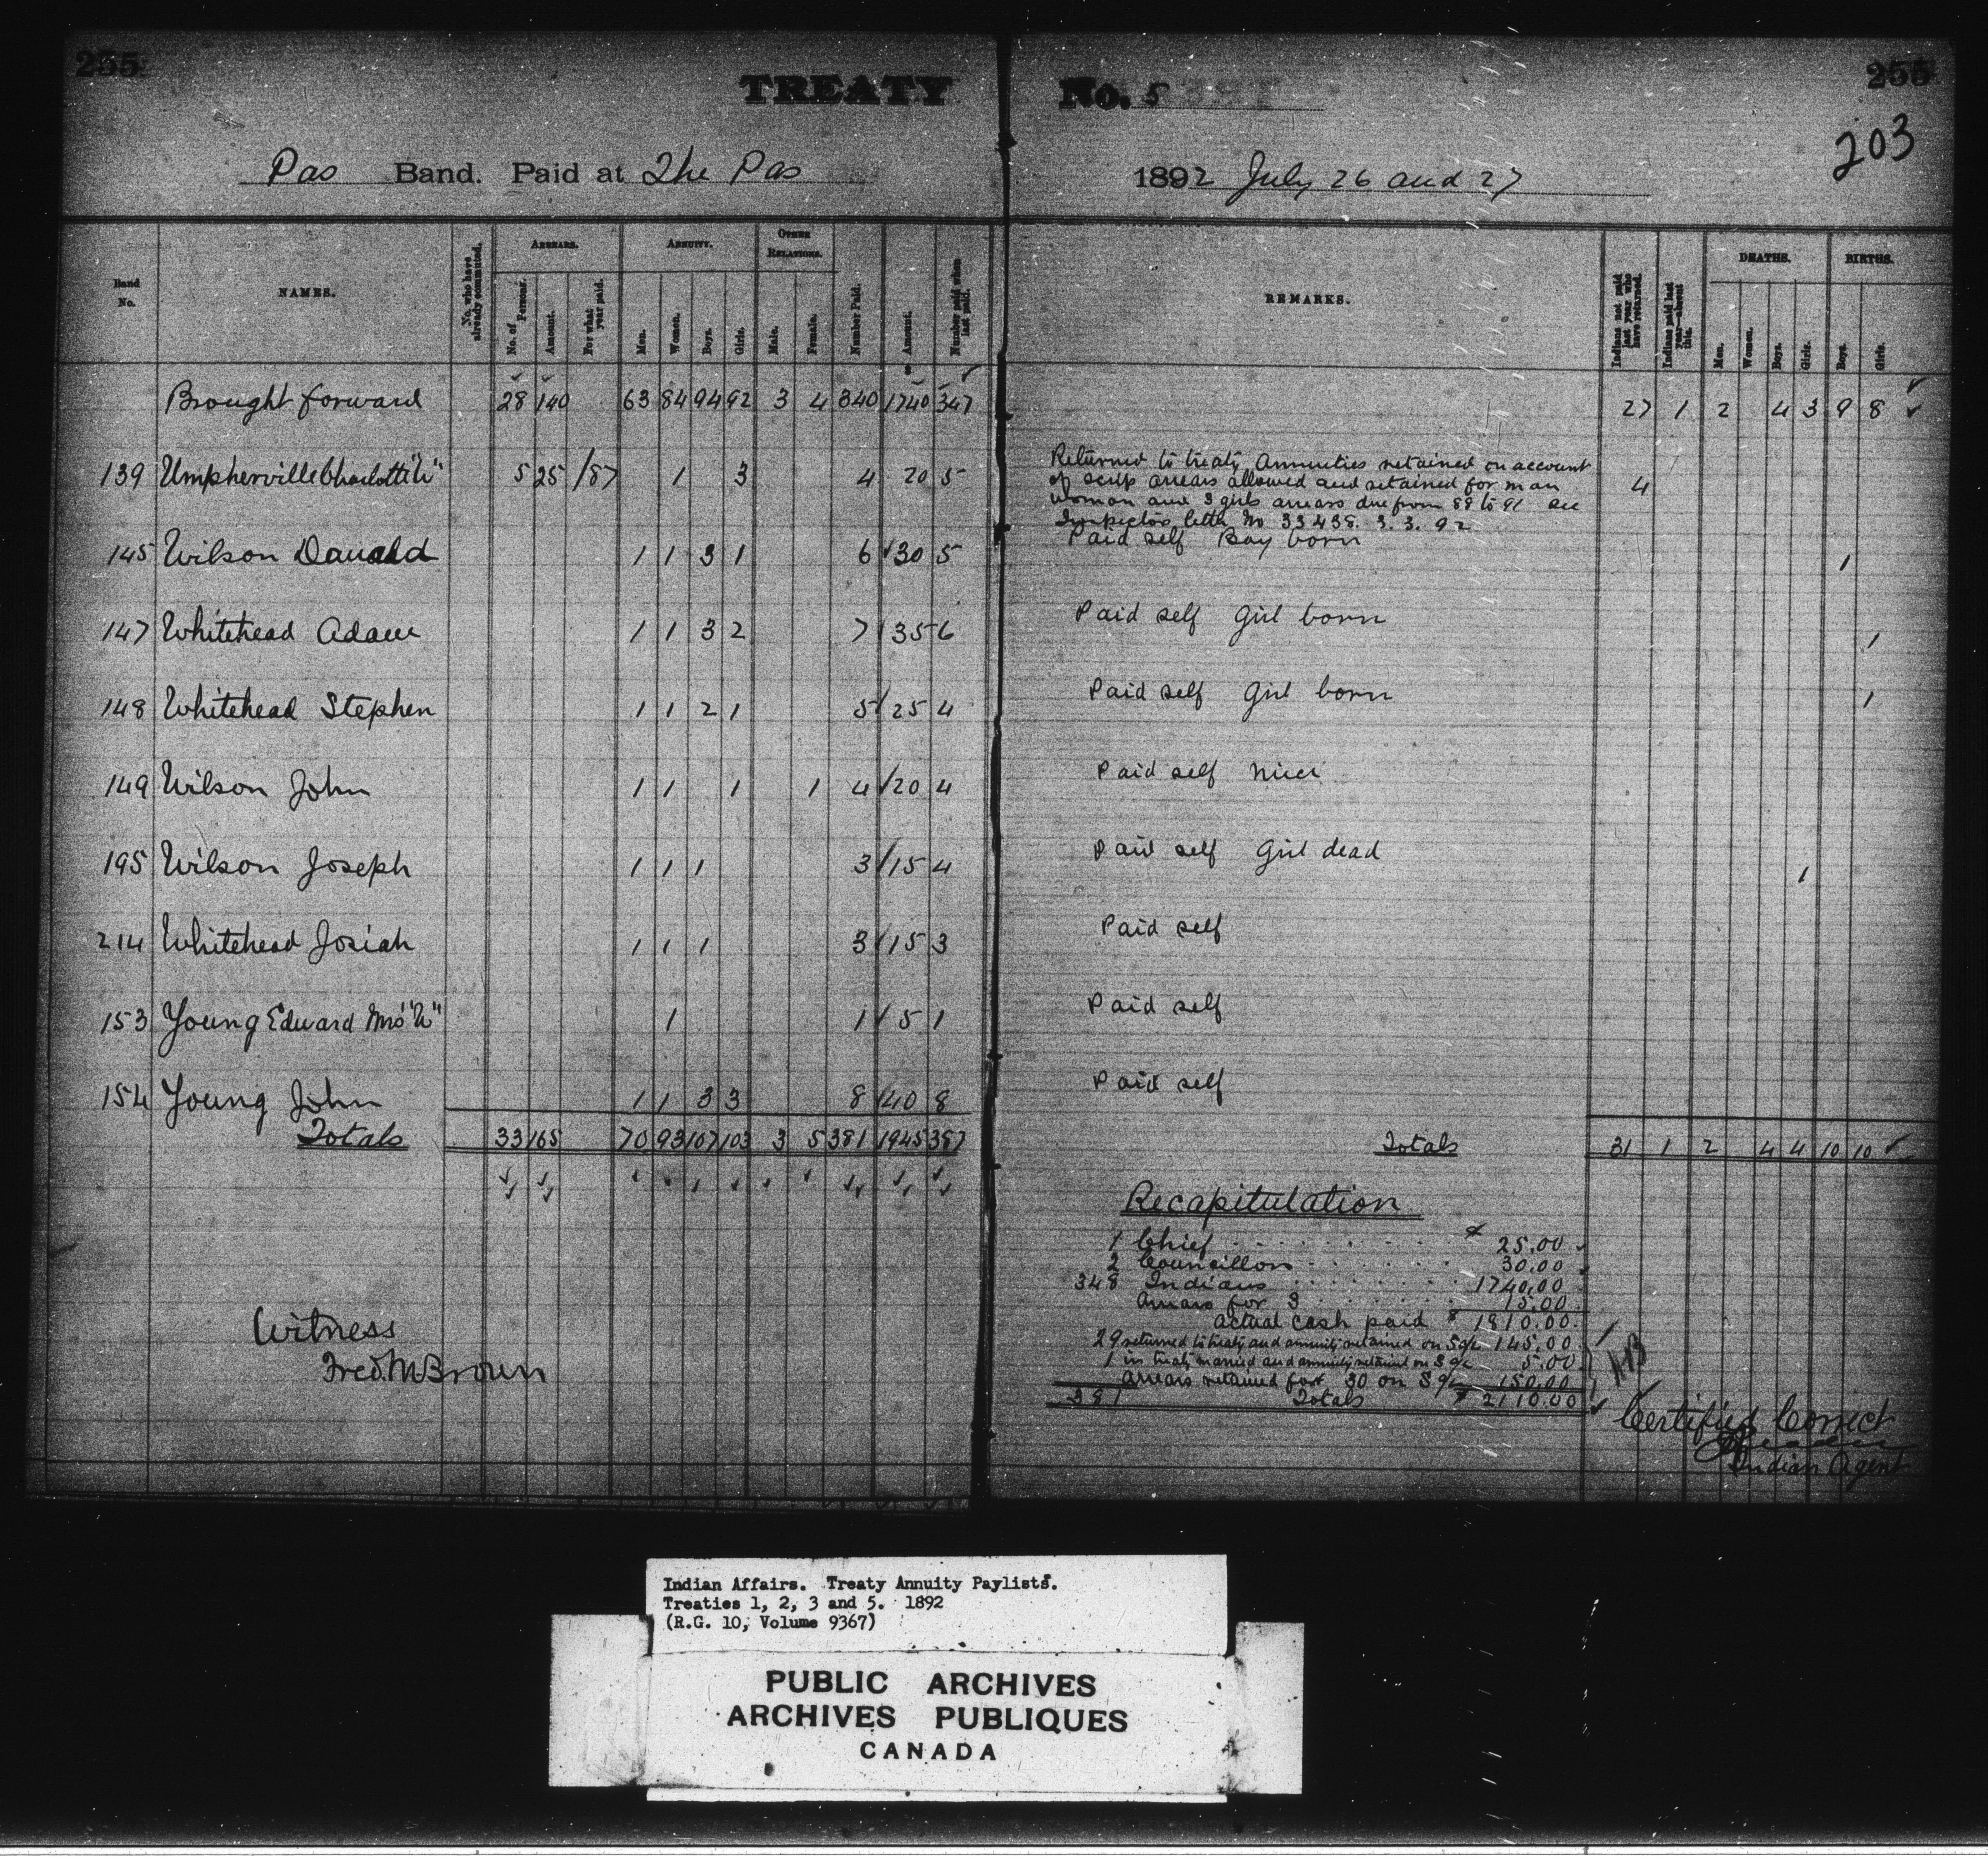 255
255
TREATY No. 5
203
Pas Band. Paid at The Pas 1892 July 26 and 27
Band No.
NAMES.
No. who have already commuted.
ARREARS.
No. of Persons.
Amount.
For what year paid.
ANNUITY.
Men.
Women.
Boys.
Girls.
OTHER RELATIONS.
Male.
Female.
Number Paid.
Amount.
Number paid when last paid.
REMARKS.
Indians not paid last year who have returned.
Indians paid last year—absent this.
DEATHS.
Men.
Women.
Boys.
Girls.
BIRTHS.
Boys.
Girls.
Brought forward 28 140 63 84 94 92 3 4 340 1740 347 27 1 2 4 3 9 8
139 Umpherville Charlotte "W" 5 25 /87 1 3 4 20 5 4
Returned to treaty Annuities retained on account
of scrip arrears allowed and retained for man
woman and 3 girls arrears due from 88 to 91 see
Inspector's letter No 33438. 3. 3. 92
145 Wilson Donald 1 1 3 1 6 30 5 Paid self Boy born 1
147 Whitehead Adam 1 1 3 2 7 35 6 Paid self Girl born 1
148 Whitehead Stephen 1 1 2 1 5 25 4 Paid self Girl born 1
149 Wilson John 1 1 1 1 4 20 4 Paid self niece
195 Wilson Joseph 1 1 1 3 15 4 Paid self Girl dead 1
214 Whitehead Josiah 1 1 1 3 15 3 Paid self
153 Young Edward Mrs "W" 1 1 5 1 Paid self
154 Young John 1 1 3 3 8 40 8 Paid self
Totals 33 165 70 93 107 103 3 5 381 1945 387 Totals 31 1 2 4 4 10 10
Recapitulation
1 Chief $ 25.00
2 Councillors 30.00
348 Indians 1740.00
Arrears for 3 15.00
Actual cash paid $ 1810.00
29 returned to treaty and annuity retained on S a/c 145.00
1 in treaty married and annuity retained on S a/c 5.00
Arrears retained for 30 on S a/c 150.00
381 Totals $ 2110.00
Witness
Fred. M Brown
Certified Correct
Indian Agent
Indian Affairs. Treaty Annuity Paylists.
Treaties 1, 2, 3 and 5. 1892
(R.G. 10, Volume 9367)
PUBLIC ARCHIVES
ARCHIVES PUBLIQUES
CANADA